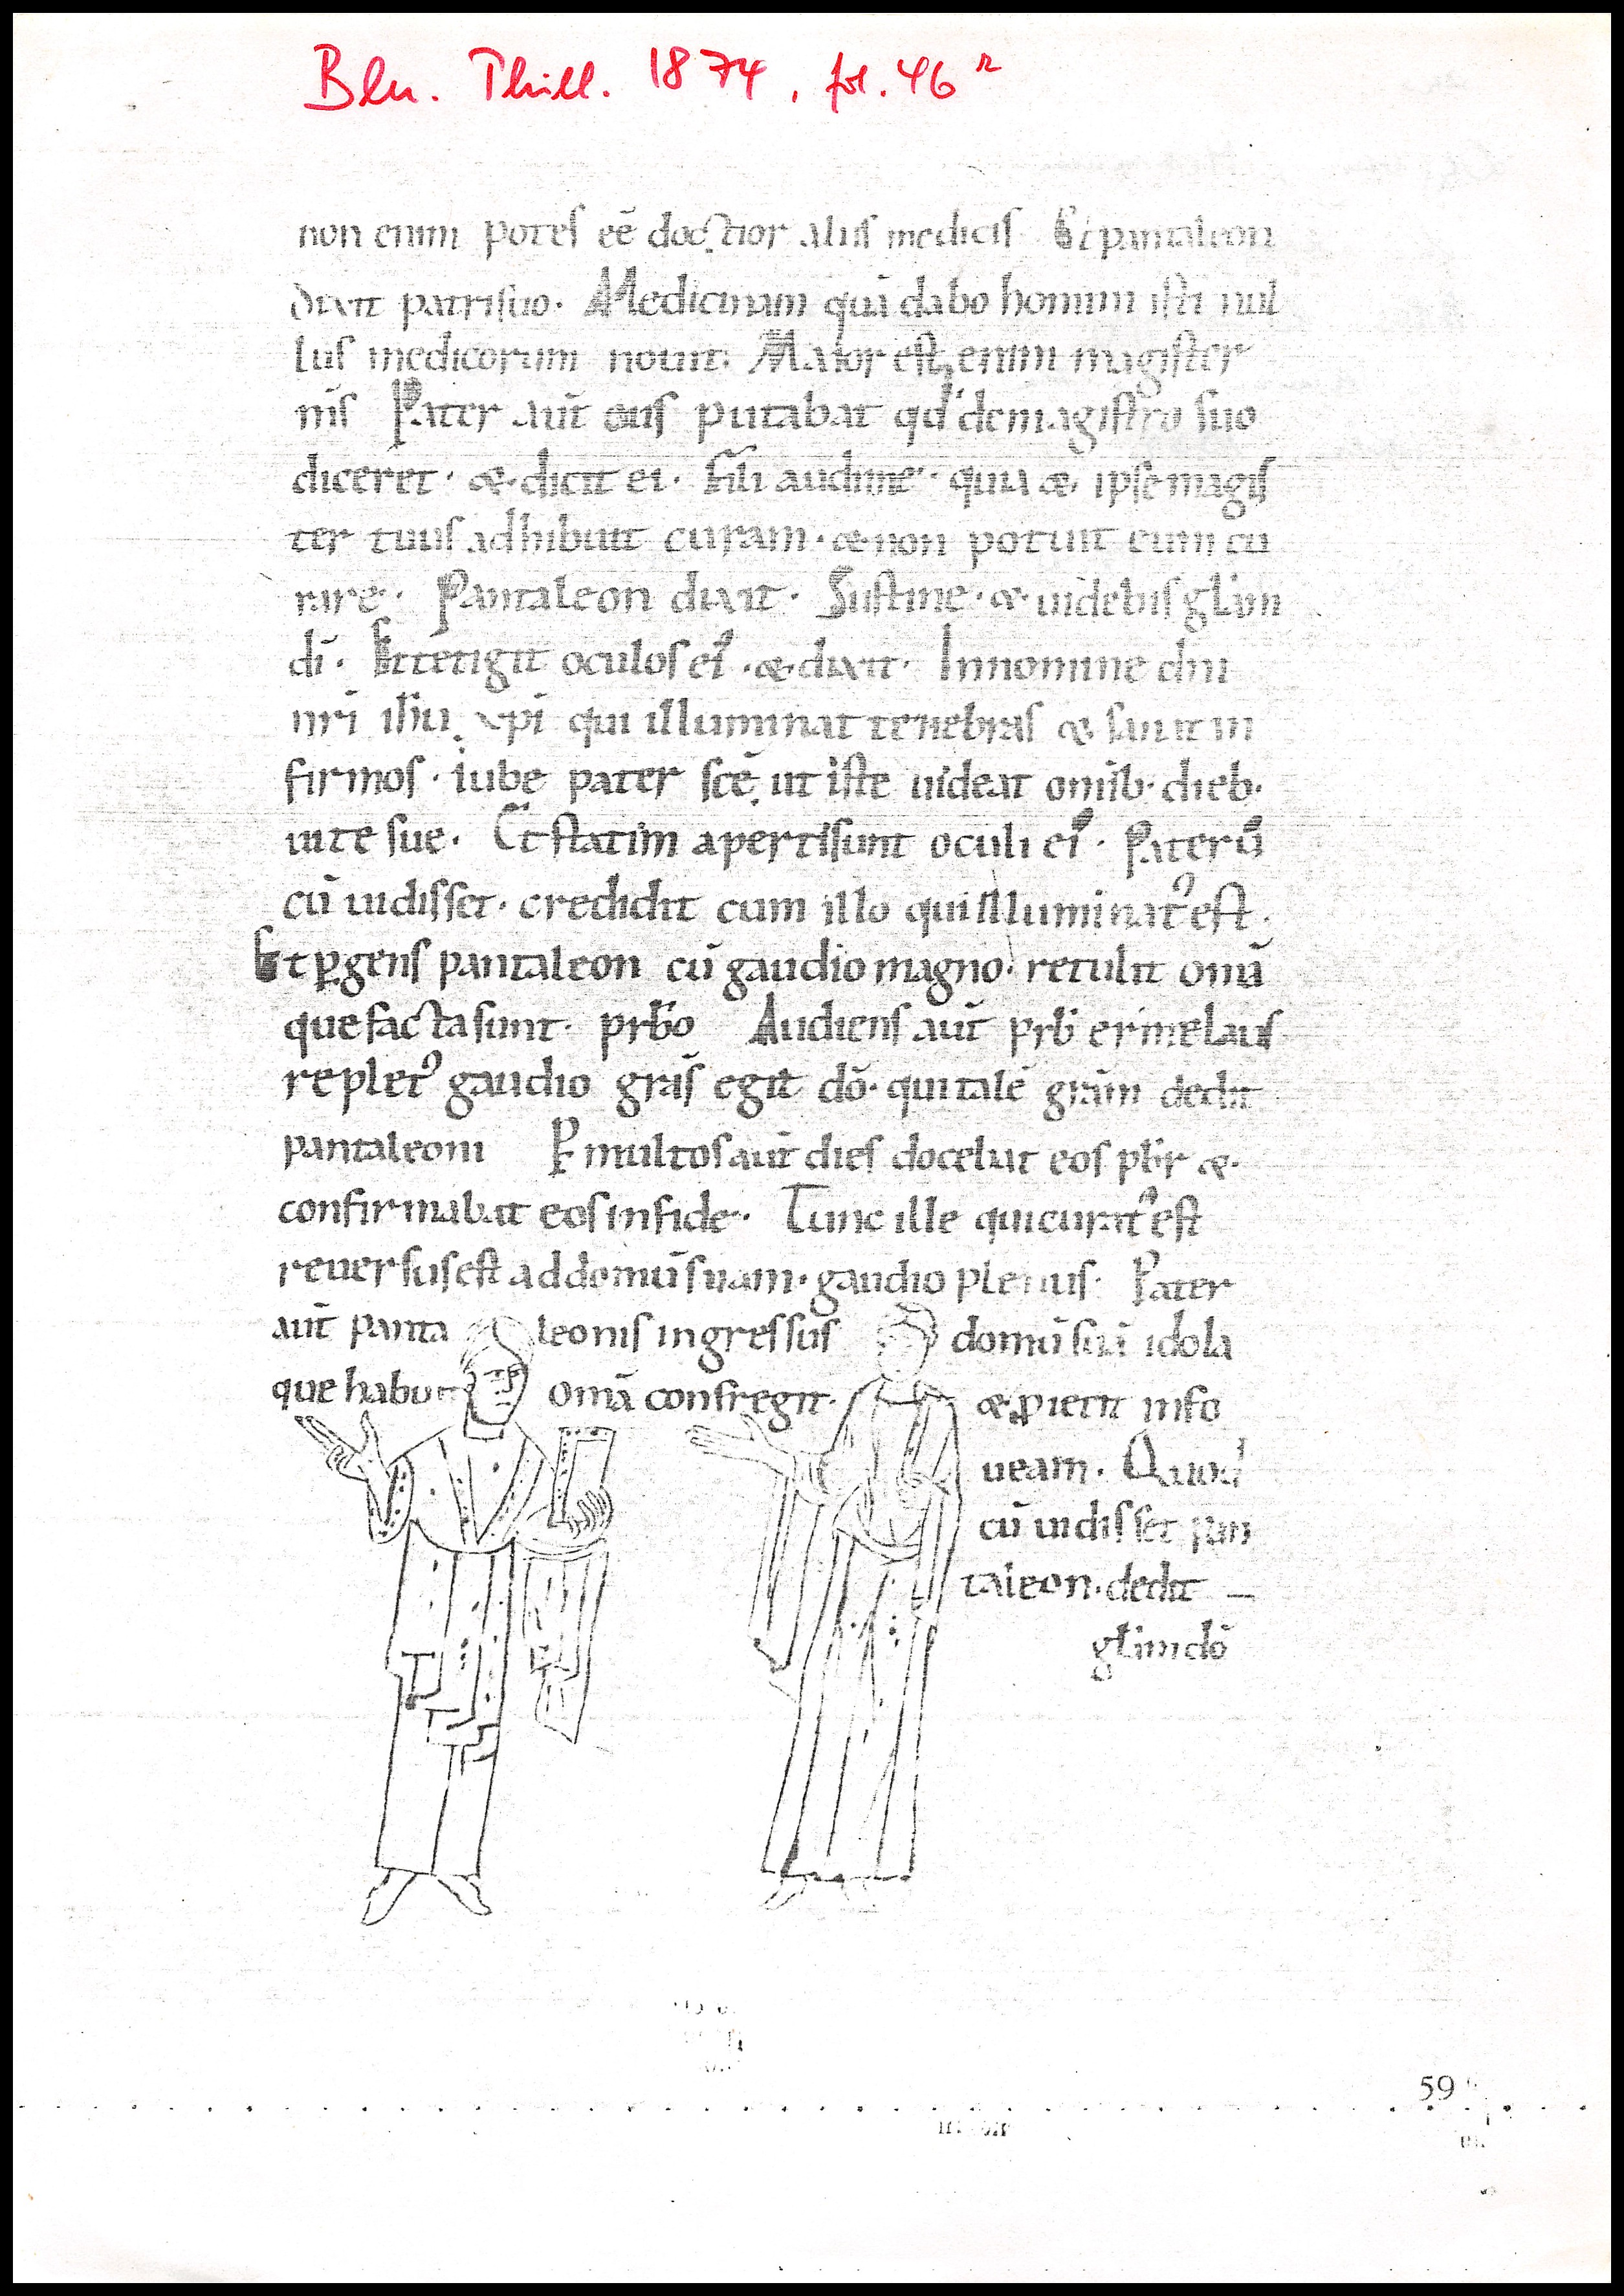 Bln. Phill. 1874, fol. 46ʳ
non enim potes eē doctior aliis medicis Et pantaleon
dixit patri suo · Medicinam quā dabo homini isti nul
lus medicorum nouit. Maior est enim magister
mīs Pater aūt eius putabat qđ de magistro suo
diceret · & dicit ei · Fili audi me · quia & ipse magis
ter tuus adhibuit curam · & non potuit eum cu
rare · Pantaleon dixit · Sustine · & uidebis glām
dī · Et tetigit oculos eiꝰ · & dixit · In nomine dni
nrī ihū xpī qui illuminat tenebras & sanat in
firmos · iube pater scē ut iste uideat omīb· dieb·
uite sue · Et statim aperti sunt oculi eiꝰ · Pater ū
cū uidisset · credidit cum illo qui illuminatꝰ est ·
Et ꝑgens pantaleon cū gaudio magno · retulit omā
que facta sunt · prb̄o Audiens aūt prb̄ ermelaus
repletꝰ gaudio grās egit dō · qui talē grām dedit
pantaleoni Ꝑ multos aūt dies docebat eos pb̄r &
confirmabat eos in fide · Tunc ille qui curatꝰ est
reuersus est ad domū suam · gaudio plenus · Pater
aūt panta leonis ingressus domū suā idola
que habuit omā confregit · & ꝓiecit in fo
ueam · Quod
cū uidisset pan
taleon · dedit –
glām dō
59